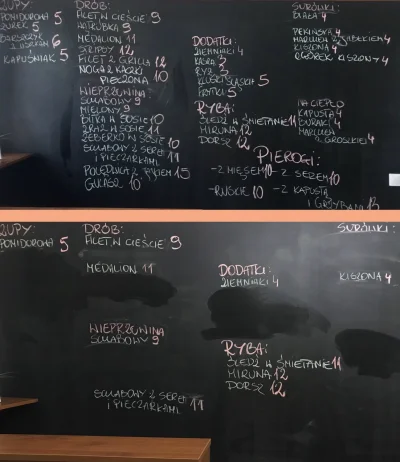 ZUPY:
POMIDOROWA 5
ŻUREK 5
BARSZCZYK Z USZKAMI 6
KAPUŚNIAK 5
DRÓB:
FILET W CIEŚCIE 9
WĄTRÓBKA 9
MEDALION 11
STRIPSY 12
FILET Z GRILLA 12
NOGA Z KACZKI
PIECZONA 10
WIEPRZOWINA
SCHABOWY 9
MIELONY 9
BITKA W SOSIE 10
ZRAZ W SOSIE 11
ŻEBERKO W SOSIE 10
SCHABOWY Z SEREM
I PIECZARKAMI 11
POLĘDWICA Z RYŻEM 15
GULASZ 10
DODATKI:
ZIEMNIAKI 4
KASZA 3
RYŻ 3
KLUSKI ŚLĄSKIE 5
FRYTKI 5
RYBA:
ŚLEDŹ W ŚMIETANIE 11
MIRUNA 12
DORSZ 12
PIEROGI:
- Z MIĘSEM 10
- Z SEREM 10
- RUSKIE 10
- Z KAPUSTĄ
I GRZYBAMI 13
SURÓWKI:
BIAŁA 4
PEKIŃSKA 4
MARCHEW Z JABŁKIEM 4
KISZONA 4
OGÓREK KISZONY 4
NA CIEPŁO
KAPUSTA 4
BURAKI 4
MARCHEW
Z GROSZKIEM 4
ZUPY:
POMIDOROWA 5
DRÓB:
FILET W CIEŚCIE 9
MEDALION 11
WIEPRZOWINA
SCHABOWY 9
SCHABOWY Z SEREM
I PIECZARKAMI 11
DODATKI:
ZIEMNIAKI 4
RYBA:
ŚLEDŹ W ŚMIETANIE 11
MIRUNA 12
DORSZ 12
SURÓWKI:
KISZONA 4